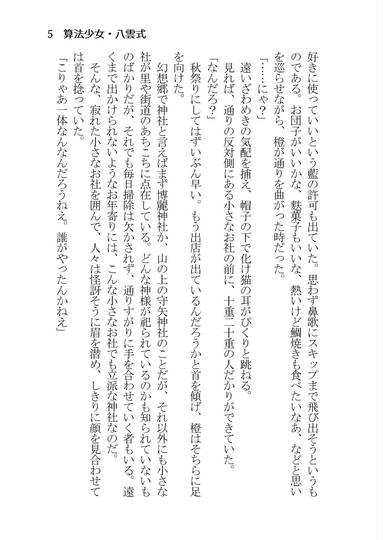 5　算法少女・八雲式
好きに使っていいという藍の許可も出ていた。思わず鼻歌にスキップまで飛び出そうというも
のである。お団子がいいかな、麩菓子もいいな、熱いけど鯛焼きも食べたいなあ、などと思い
を巡らせながら、橙が通りを曲がった時だった。
「……にゃ？」
遠いざわめきの気配を捕え、帽子の下で化け猫の耳がぴくりと跳ねる。
見れば、通りの反対側にある小さなお社の前に、十重二十重の人だかりができていた。
「なんだろ？」
秋祭りにしてはずいぶん早い。もう出店が出ているんだろうかと首を傾げ、橙はそちらに足
を向けた。
幻想郷で神社と言えばまず博麗神社か、山の上の守矢神社のことだが、それ以外にも小さな
社が里や街道のあちこちに点在している。どんな神様が祀られているのかも知られていないも
のばかりだが、それでも毎日掃除は欠かさず、通りすがりに手を合わせていく者もいる。遠
くまで出かけられないようなお年寄りには、こんな小さなお社でも立派な神社なのだ。
そんな、寂れた小さなお社を囲んで、人々は怪訝そうに眉を潜め、しきりに顔を見合わせて
は首を捻っていた。
「こりゃあ一体なんなんだろうねえ。誰がやったんかねえ」